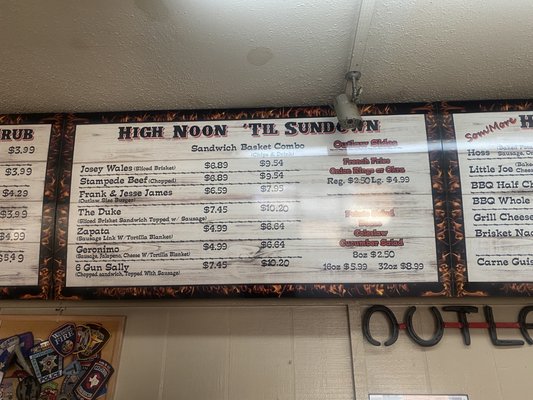 RUB
$3.99
$3.99
$4.29
$3.99
$4.99
$5.49
High Noon 'Til Sundown
Sandwich Basket Combo
Josey Wales (Sliced Brisket) $6.89 $9.54
Stampede Beef (Chopped) $6.89 $9.54
Frank & Jesse James $6.59 $7.95
The Duke $7.45 $10.20
(Sliced Brisket Sandwich Topped w/ Sausage)
Zapata $4.99 $6.64
(Sausage Link W/ Tortilla Blanket)
Geronimo $4.99 $6.64
(Sausage, Jalapeno, Cheese W/ Tortilla Blanket)
6 Gun Sally $7.45 $10.20
(Chopped sandwich, Topped With Sausage)
Outlaw Sides
French Fries
Onion Rings or Okra
Reg. $2.50 Lg. $4.99
Coleslaw
Cucumber Salad
8oz $2.50
16oz $5.99 32oz $8.99
Som'More H
Hoss
Little Joe
BBQ Half C
BBQ Whole
Grill Cheese
Brisket Nac
Carne Guis
OUTL